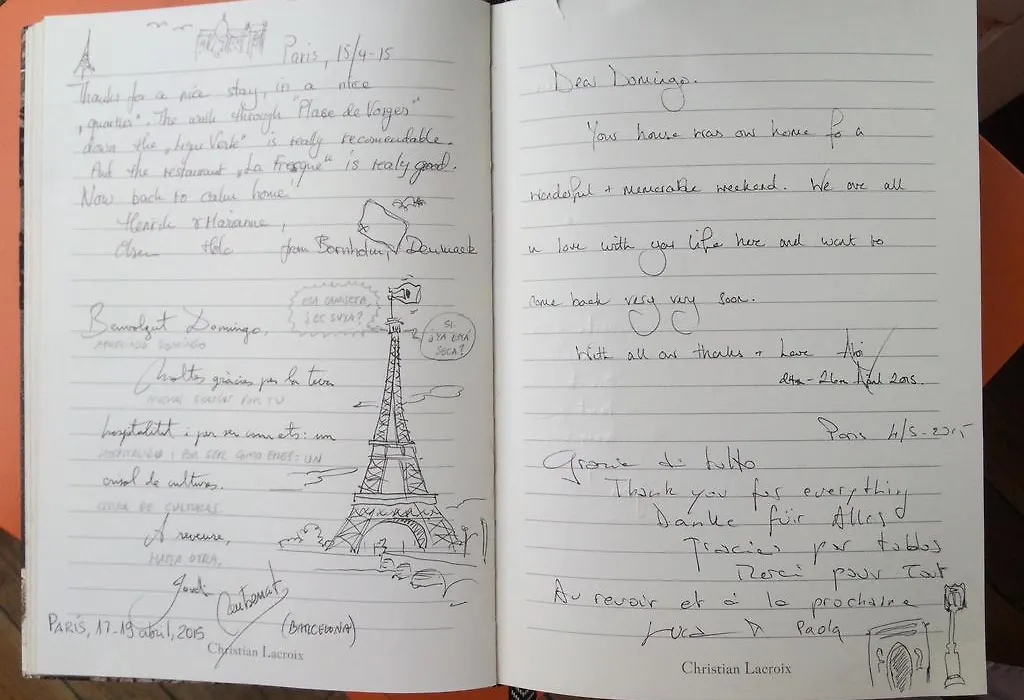 Paris, 15/4-15
Thanks for a nice stay, in a nice
„quartier“. The walk through "Plase de Vorges"
down the „Ligne Verte“ is really recomendable.
And the restaurant „La Fresque“ is realy good.
Now back to calm home!
Henrik & Marianne,
Olsen Holc from Bornholm, Denmark
ESA CAMISETA,
¿ES SUYA?
SI.
¿YA ESTÁ
SECA?
Benvolgut Domingo,
APRECIADO DOMINGO
Moltes gràcies per la teva
MUCHAS GRACIAS POR TU
hospitalitat i per ser com ets: un
HOSPITALIDAD Y POR SER COMO ERES: UN
crisol de cultures.
CRISOL DE CULTURAS.
A reveure,
HASTA OTRA,
Jordi
Montserrat
PARÍS, 17-19 abril, 2015
(BARCELONA)
Christian Lacroix
Dear Domingo.
Your house was our home for a
wonderful + memorable weekend. We are all
in love with your life here and want to
come back very very soon.
With all our thanks + Love
24th - 26th April 2015.
Paris 4/5-2015
Grazie di tutto
Thank you for everything
Danke für Alles
Gracias por todos
Merci pour Tout
Au revoir et à la prochaine
Luca Paola
Christian Lacroix